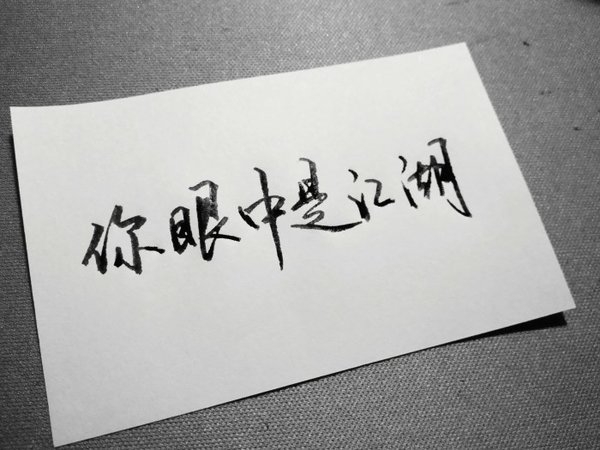 你眼中是江湖